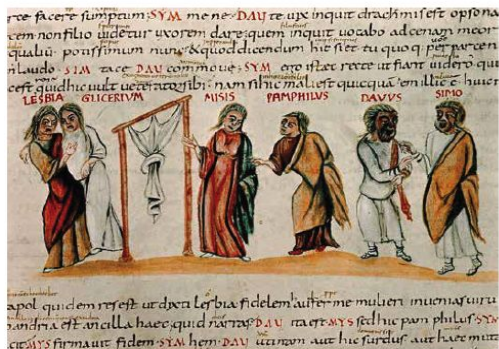 rte facere sumptum· SYM me ne· DAU te uix inquit drachmis est opsona
cem non filio uidetur uxorem dare; quem inquit uocabo ad cenam meor
qualiū potissimum nunc & quod dicendum hic siet tu quoq· per parcen
nilaudo· SIM tace DAU commoui· SYM ego istaec recte ut fiant uidero
c est quid hic uult ueterator sibi· nam si hic mali est quicquā em illic ē huic
LESBIA GLICERIUM MISIS PAMPHILUS DAVVS SIMO
apol quidem res est ut dixti lesbia fidelem haut ferme mulieri inuenias uirū
andria est ancilla haec; quid narras; DAU ita est MYS sed hic pam philus· SYM
cit MYS firmauit fidem· SYM hem· DAU utinam aut hic surdus aut haec mut